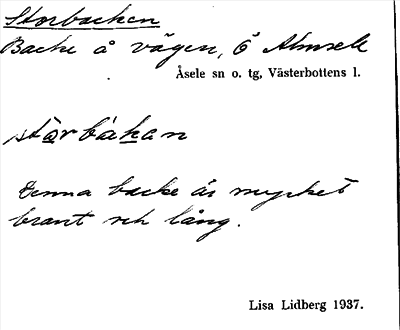 Storbacken
Backe å vägen, Ö Almsele
Åsele sn o. tg, Västerbottens l.
stơrbakan
Denna backe är mycket
brant och lång.
Lisa Lidberg 1937.